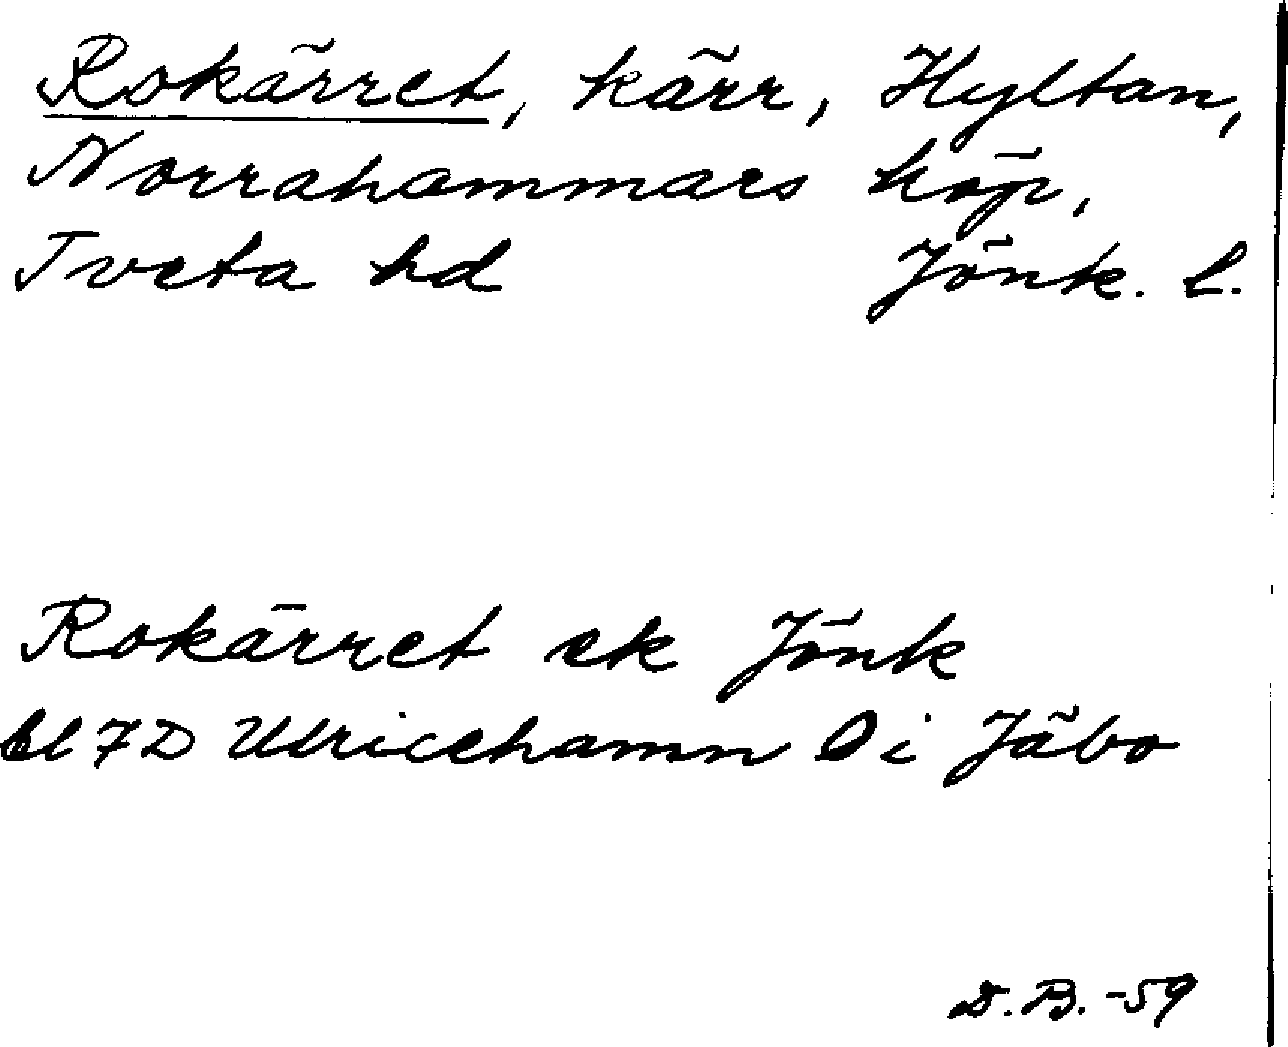 Rokärret, kärr, Hyltan,
Norrahammars köp,
Tveta hd Jönk. l.
Rokärret ek Jönk
bl 7D Ulricehamn Di Jäbo
D.B. -59